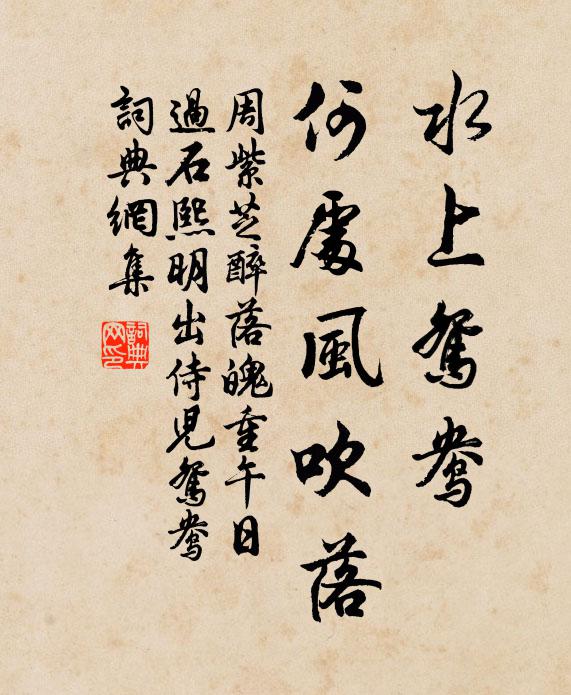 水上鴛鴦
何處風吹落
周紫芝醉落魄重午日
過石熙明出侍兒鴛鴦
詞典網集
詞典网印